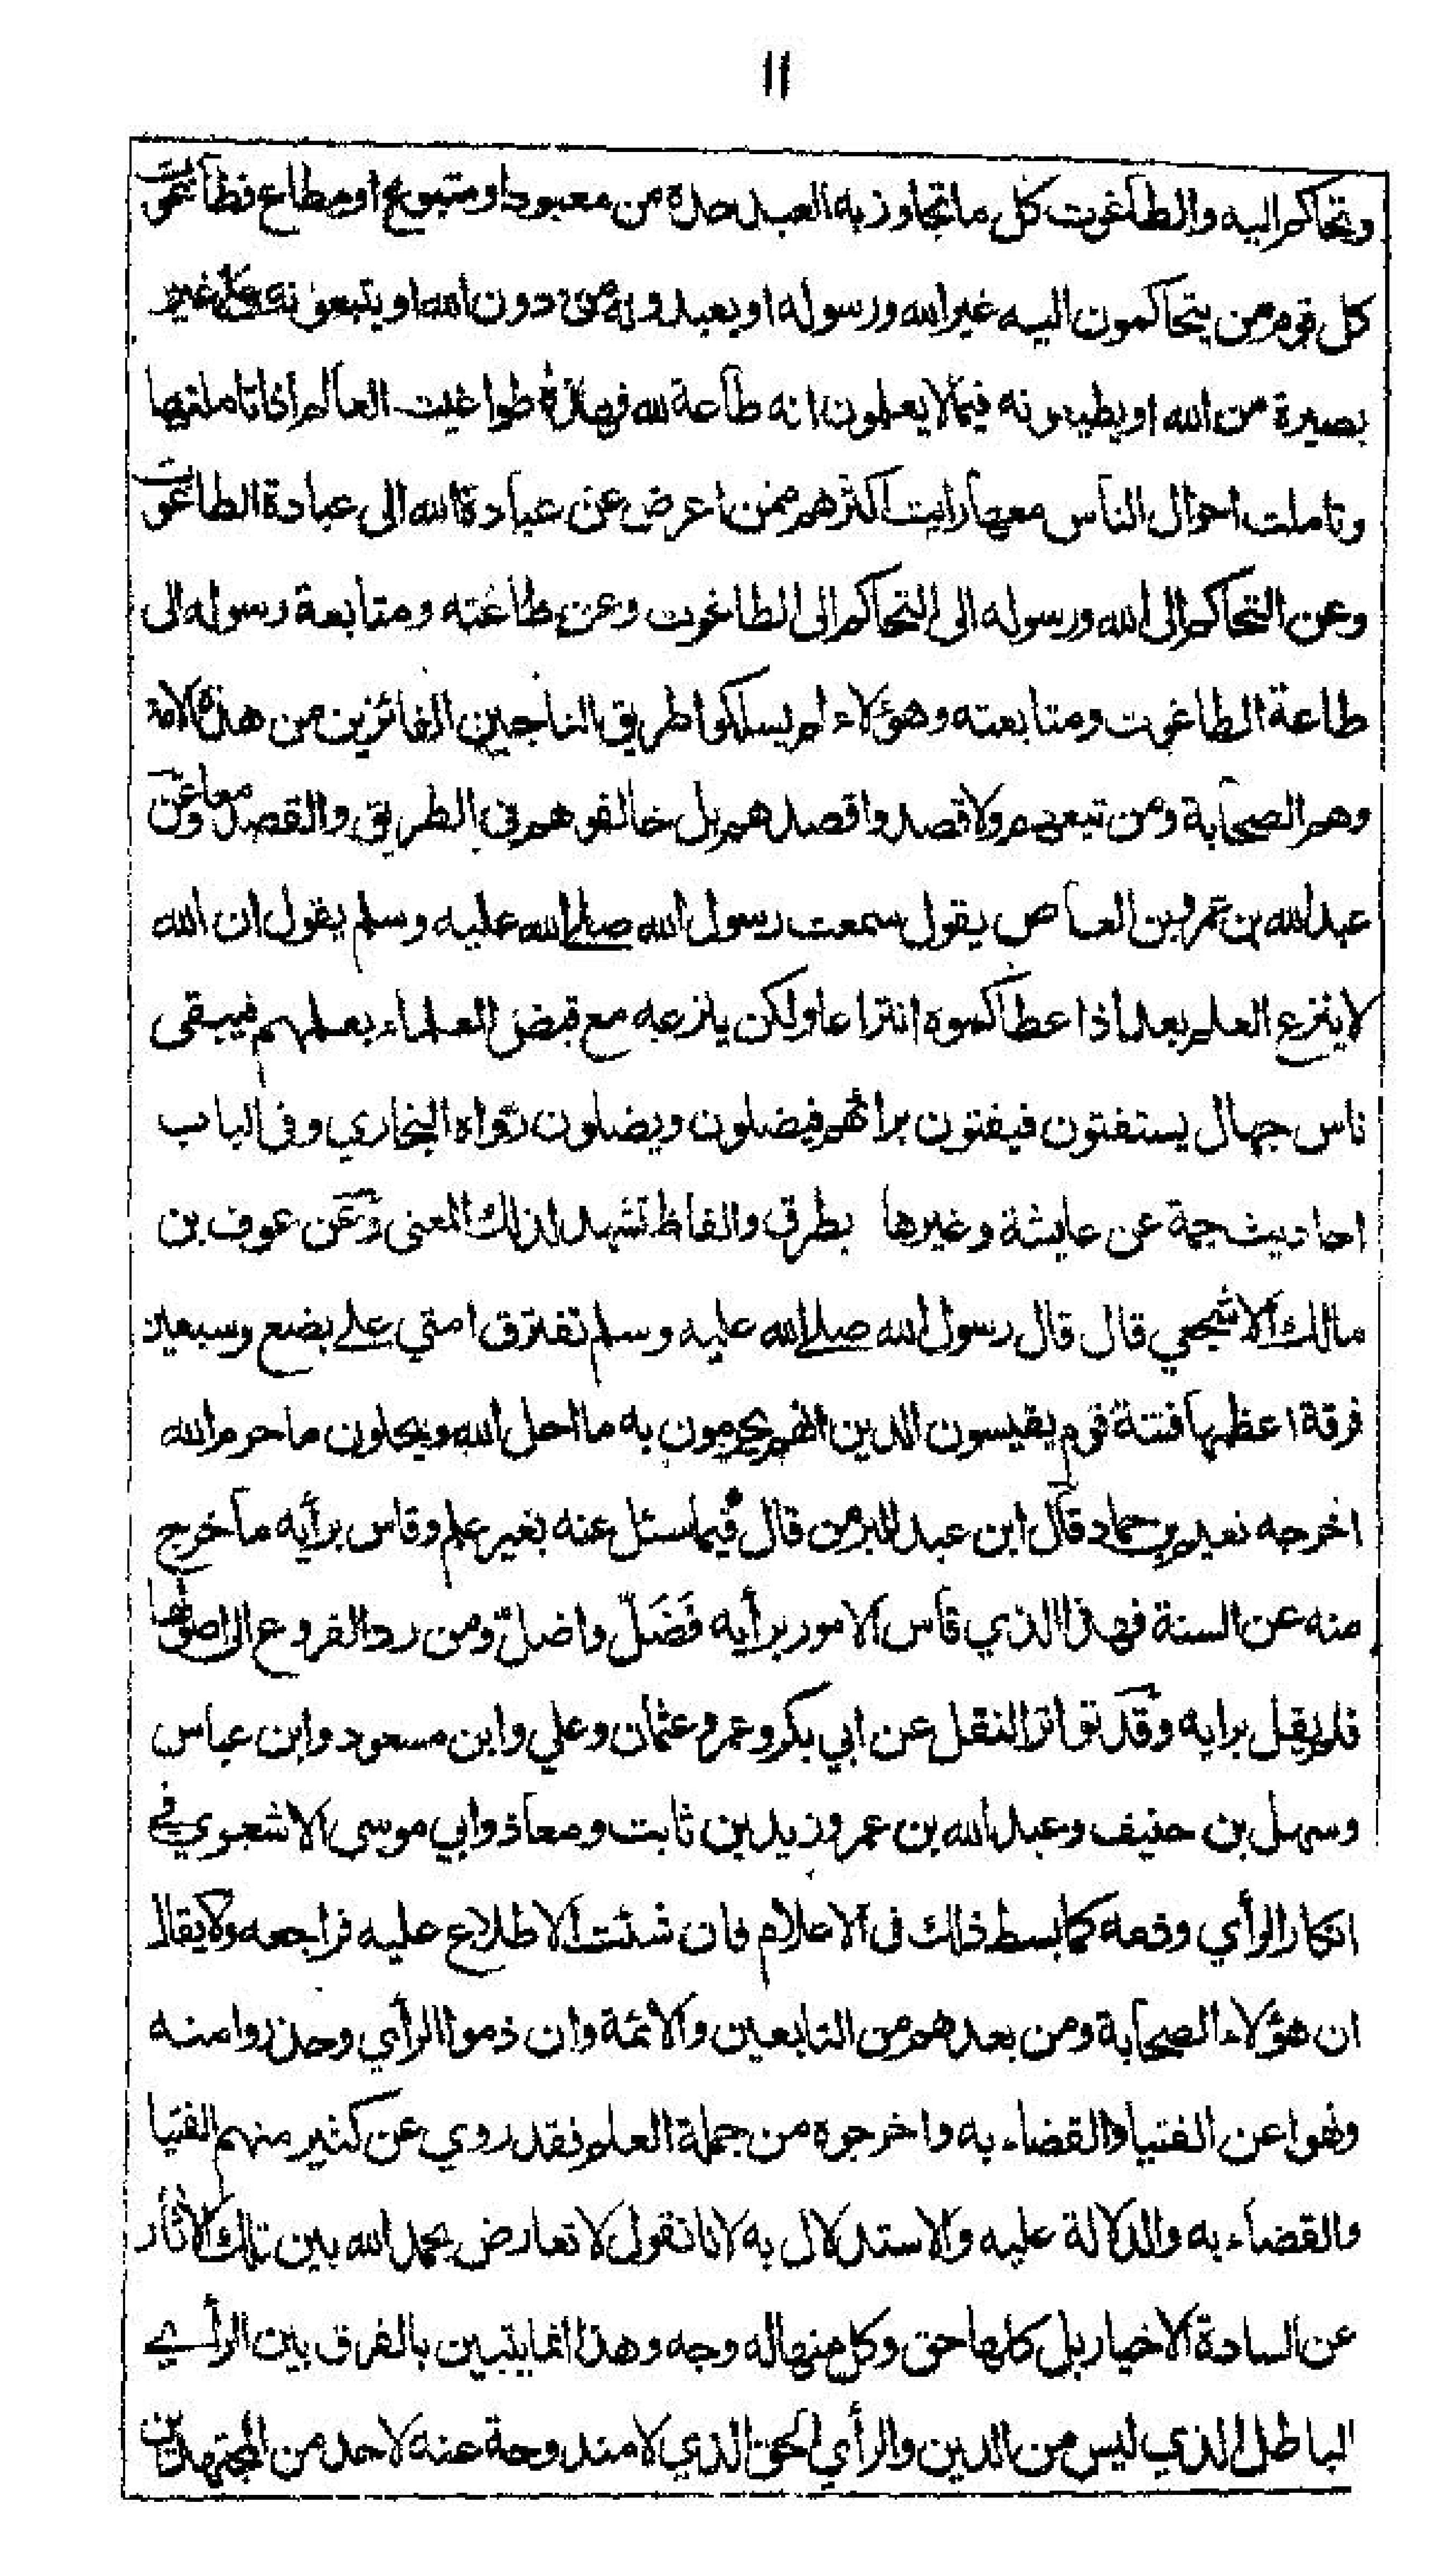 ١١
وتحاكم اليه والطاغوت كل ما تجاوز به العبد حده من معبود او متبوع او مطاع فطاغوت
كل قوم من يتحاكمون اليه غير الله ورسوله او يعبدونه من دون الله او يتبعونه على غير
بصيرة من الله او يطيعونه فيما لا يعلمون انه طاعة لله فهذه طواغيت العالم اذا تاملتها
وتاملت احوال الناس معها رايت اكثرهم ممن اعرض عن عبادة الله الى عبادة الطاغوت
وعن التحاكم الى الله ورسوله الى التحاكم الى الطاغوت وعن طاعته ومتابعة رسوله الى
طاعة الطاغوت ومتابعته وهؤلاء لم يسلكوا طريق الناجين الفائزين من هذه الامة
وهم الصحابة ومن تبعهم ولا قصدوا قصدهم بل خالفوهم في الطريق والقصد معا وعن
عبد الله بن عمرو بن العاص يقول سمعت رسول الله صلى الله عليه وسلم يقول ان الله
لا ينزع العلم بعد اذا عطاكموه انتزاعا ولكن ينزعه مع قبض العلماء بعلمهم فيبقى
ناس جهال يستفتون فيفتون برائهم فيضلون ويضلون رواه البخاري وفي الباب
احاديث جمة عن عايشة وغيرها بطرق والفاظ تشهد لذلك المعنى وعن عوف بن
مالك الاشجعي قال قال رسول الله صلى الله عليه وسلم تفترق امتي على بضع وسبعين
فرقة اعظمها فتنة قوم يقيسون الدين برائهم يحرمون به ما احل الله ويحلون ما حرم الله
اخرجه نعيم بن حماد قال ابن عبد البر من قال فيما سئل عنه بغير علم وقاس برأيه ما خرج
منه عن السنة فهذا الذي قاس الامور برأيه فَضَلّ واضلّ ومن رد الفروع الى اصولها
فلم يقل برايه وقد تواتر النقل عن ابي بكر وعمر وعثمان وعلي وابن مسعود وابن عباس
وسهل بن حنيف وعبد الله بن عمر وزيد بن ثابت ومعاذ وابي موسى الاشعري في
انكار الرأي وذمه كما بسط ذلك في الاعلام فان شئت الاطلاع عليه فراجعه ولا يقال
ان هؤلاء الصحابة ومن بعدهم من التابعين والائمة وان ذموا الرأي وحذروا منه
ونهوا عن الفتيا والقضاء به واخرجوه من جملة العلم فقد روي عن كثير منهم الفتيا
والقضاء به والدلالة عليه والاستدلال به لانا نقول لا تعارض بحمد الله بين تلك الاثار
عن السادة الاخيار بل كلها حق وكل منها له وجه وهذا انما يتبين بالفرق بين الرأي
الباطل الذي ليس من الدين والرأي الحق الذي لا مندوحة عنه لاحد من المجتهدين